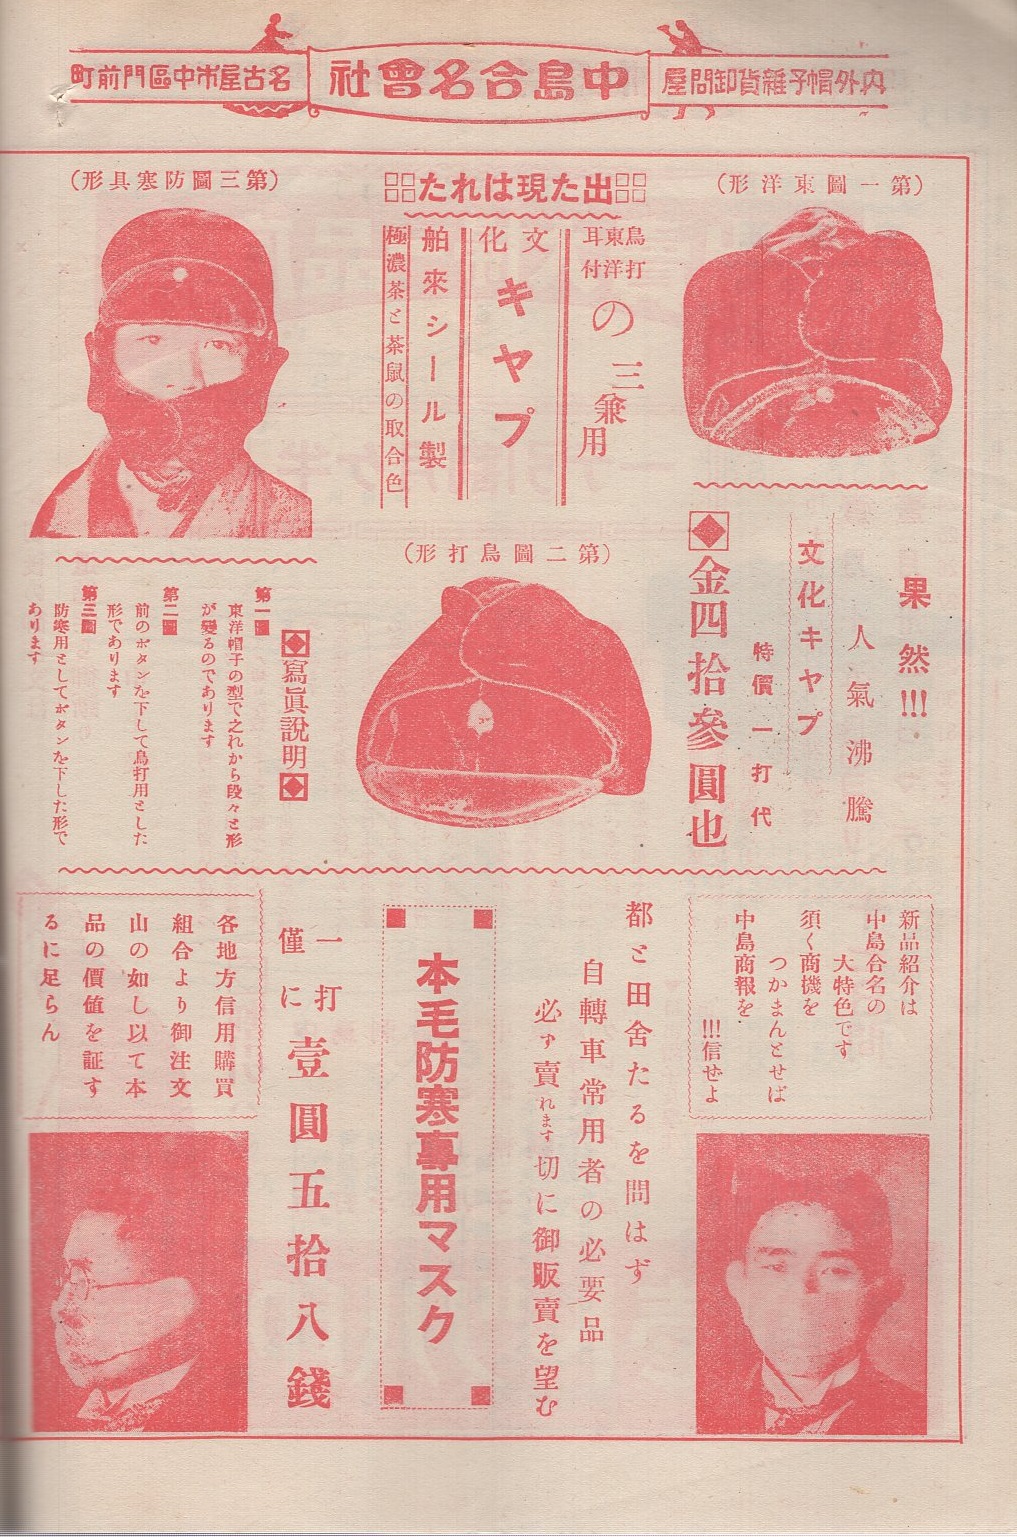 内外帽子雜貨卸問屋
中島合名會社
名古屋市中區門前町
（第一圖東洋形）
出た現はれた
鳥打
東洋
耳付
の三兼用
文化
キャプ
舶來シール製
極濃茶と茶鼠の取合色
（第三圖防寒具形）
果然!!!
人氣沸騰
文化キャプ
特價一打代
金四拾參圓也
（第二圖鳥打形）
寫眞說明
第一圖
東洋帽子の型で之れから段々と形
が變るのであります
第二圖
前のボタンを下して鳥打用とした
形であります
第三圖
防寒用としてボタンを下した形で
あります
新品紹介は
中島合名の
大特色です
須く商機を
つかまんとせば
中島商報を
!!!信せよ
都と田舍たるを問はず
自轉車常用者の必要品
必ず賣れます切に御販賣を望む
本毛防寒專用マスク
一打
僅に
壹圓五拾八錢
各地方信用購買
組合より御注文
山の如し以て本
品の價値を証す
るに足らん